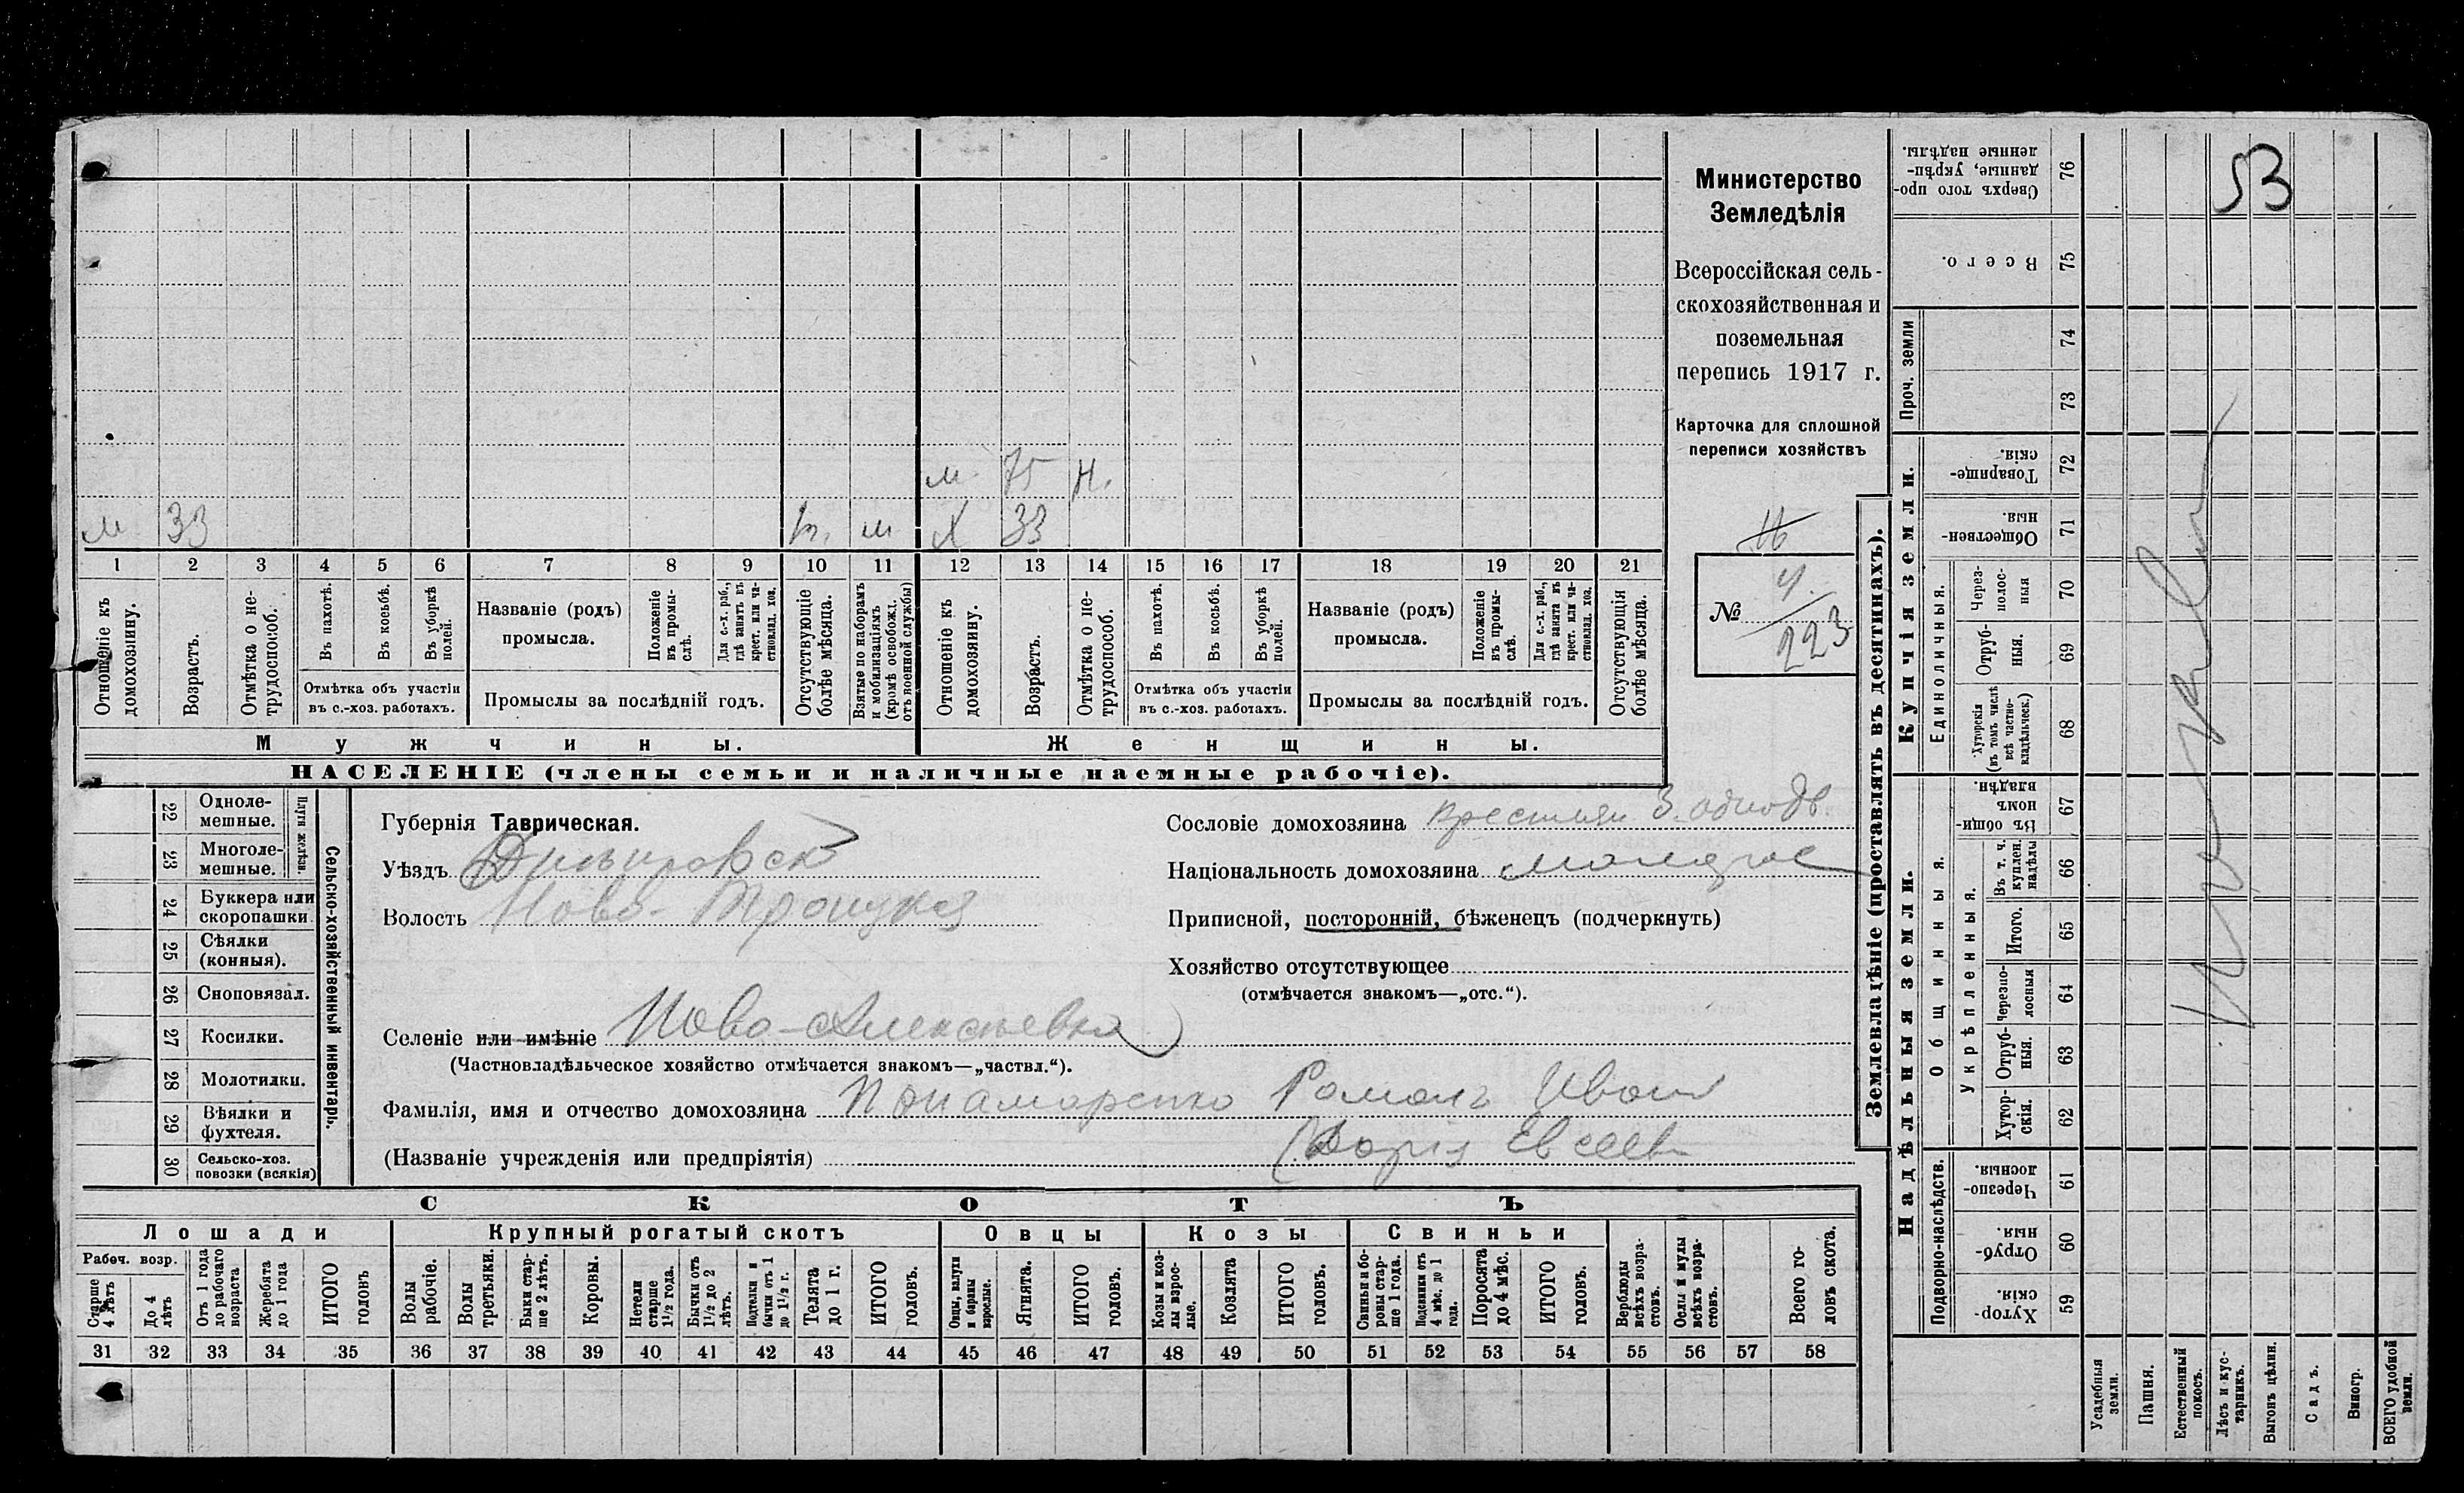 м 75 н.
м 33 м х 33
1 2 3 4 5 6 7 8 9 10 11 12 13 14 15 16 17 18 19 20 21
Отношеніе къ домохозяину.
Возрастъ.
Отмѣтка о не-трудоспособ.
Въ пахотѣ.
Въ косьбѣ.
Въ уборкѣ полей.
Отмѣтка объ участіи
въ с.-хоз. работахъ.
Названіе (родъ)
промысла.
Положеніе въ промы-слѣ.
Для с.-х. раб., гдѣ занятъ въ крест. или ча-стновлад. хоз.
Промыслы за послѣдній годъ.
Отсутствующіе болѣе мѣсяца.
Взятые по наборамъ и мобилизаціямъ (кромѣ освобожд. отъ военной службы)
Отношеніе къ домохозяину.
Возрастъ.
Отмѣтка о не-трудоспособ.
Въ пахотѣ.
Въ косьбѣ.
Въ уборкѣ полей.
Отмѣтка объ участіи
въ с.-хоз. работахъ.
Названіе (родъ)
промысла.
Положеніе въ промы-слѣ.
Для с.-х. раб., гдѣ занята въ крест. или ча-стновлад. хоз.
Промыслы за послѣдній годъ.
Отсутствующія болѣе мѣсяца.
Мужчины. Женщины.
НАСЕЛЕНІЕ (члены семьи и наличные наемные рабочіе).
Министерство
Земледѣлія
Всероссійская сель-
скохозяйственная и
поземельная
перепись 1917 г.
Карточка для сплошной
переписи хозяйствъ
16
№ 4.
223
22 Одноле-мешные.
23 Многоле-мешные.
Плуги желѣзн.
24 Буккера или скоропашки.
25 Сѣялки (конныя).
26 Сноповязал.
27 Косилки.
28 Молотилки.
29 Вѣялки и фухтеля.
30 Сельско-хоз. повозки (всякія)
Сельско-хозяйственный инвентарь.
Губернія Таврическая.
Уѣздъ Днѣпровск
Волость Ново-Троицкая
Селеніе или имѣніе Ново-Алексѣевка
(Частновладѣльческое хозяйство отмѣчается знакомъ—„частвл.“).
Фамилія, имя и отчество домохозяина Понамаренко Романъ Иван
(Названіе учрежденія или предпріятія) (Дарія Евсеев
Сословіе домохозяина крестьян
Національность домохозяина малорос
Приписной, посторонній, бѣженецъ (подчеркнуть)
Хозяйство отсутствующее
(отмѣчается знакомъ—„отс.“).
СКОТЪ
Лошади Крупный рогатый скотъ Овцы Козы Свиньи
Рабоч. возр.
Старше 4 лѣтъ
До 4 лѣтъ
Отъ 1 года до рабочаго возраста
Жеребята до 1 года
ИТОГО головъ
Волы рабочіе.
Волы третьяки.
Быки стар-ше 2 лѣтъ.
Коровы.
Нетели старше 1½ года.
Бычки отъ 1½ до 2 лѣтъ.
Подтелки и бычки отъ 1 до 1½ г.
Телята до 1 г.
ИТОГО головъ.
Овцы, валухи и бараны взрослые.
Ягнята.
ИТОГО головъ.
Козы и коз-лы взрос-лые.
Козлята
ИТОГО головъ.
Свиньи и бо-ровы стар-ше 1 года.
Подсвинки отъ 4 мѣс. до 1 года.
Поросята до 4 мѣс.
ИТОГО головъ.
Верблюды всѣхъ возра-стовъ.
Ослы и мулы всѣхъ возра-стовъ.
Всего го-ловъ скота.
31 32 33 34 35 36 37 38 39 40 41 42 43 44 45 46 47 48 49 50 51 52 53 54 55 56 57 58
Землевладѣніе (проставлять въ десятинахъ).
Купчія земли.
Надѣльныя земли.
Сверхъ того про-данные, укрѣп-ленные надѣлы. 76
Всего. 75
Проч. земли
74
73
Товарище-скія. 72
Обществен-ныя. 71
Единоличныя.
Через-полос-ныя 70
Отруб-ныя. 69
Хуторскія (въ томъ числѣ всѣ частно-владѣльческ.) 68
Общинныя.
Въ общин-номъ владѣн. 67
Укрѣпленныя.
Въ т. ч. куплен. надѣлы 66
Итого. 65
Черезпо-лосныя 64
Отруб-ныя. 63
Хутор-скія. 62
Подворно-наслѣдств.
Черезпо-лосныя 61
Отруб-ныя 60
Хутор-скія. 59
Усадебныя земли.
Пашня.
Естественный покосъ.
Лѣсъ и кус-тарникъ.
Выгонъ цѣлин.
Садъ.
Виногр.
ВСЕГО удобной земли.
53